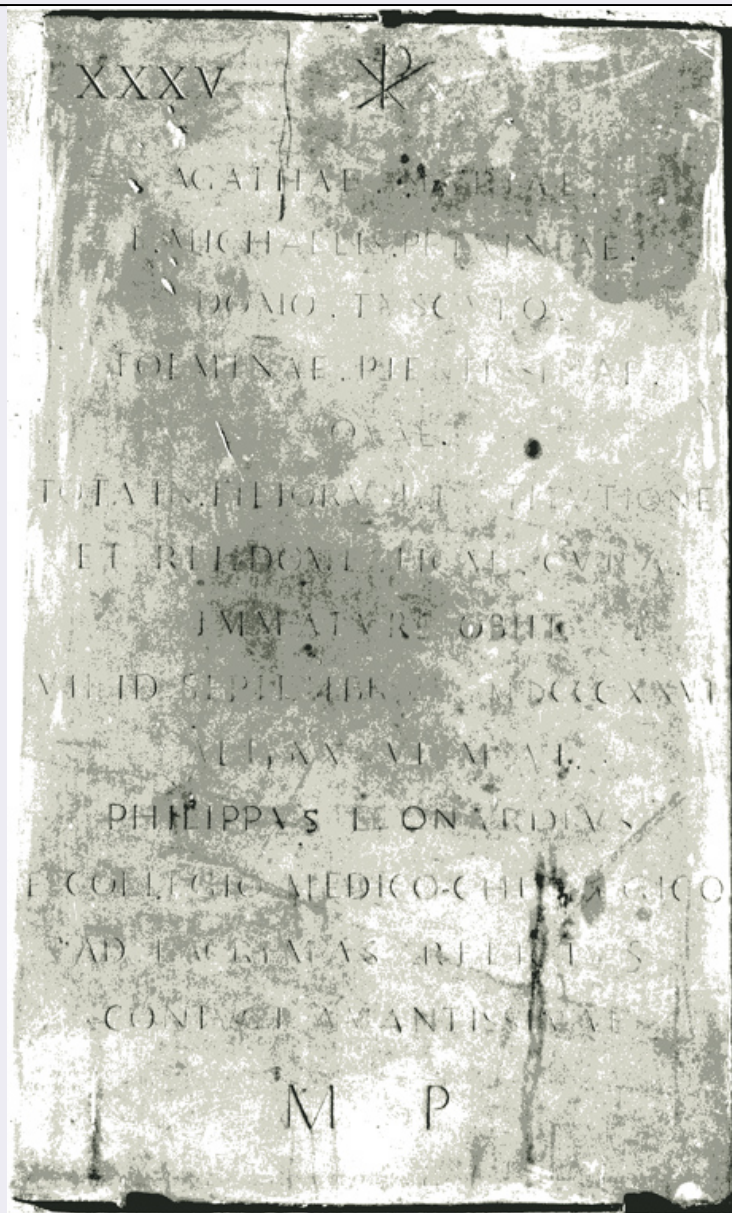 XXXV ☧
AGATHAE .
F. MICHAELIS.
DOMO . TVSCVLO .
FOEMINAE . PIENTISSIMAE .
QVAE .
TOTA IN . FILIORVM INSTITVTIONE
ET REI DOMESTICAE . CVRA .
IMMATVRE OBIIT
VII ID SEPTEMBR MDCCCXXVI
PHILIPPVS LEONARDIVS
E COLLEGIO MEDICO-CHIRVRGICO
AD LACRIMAS RELICTVS
CONIVGI AMANTISSIMAE
M P